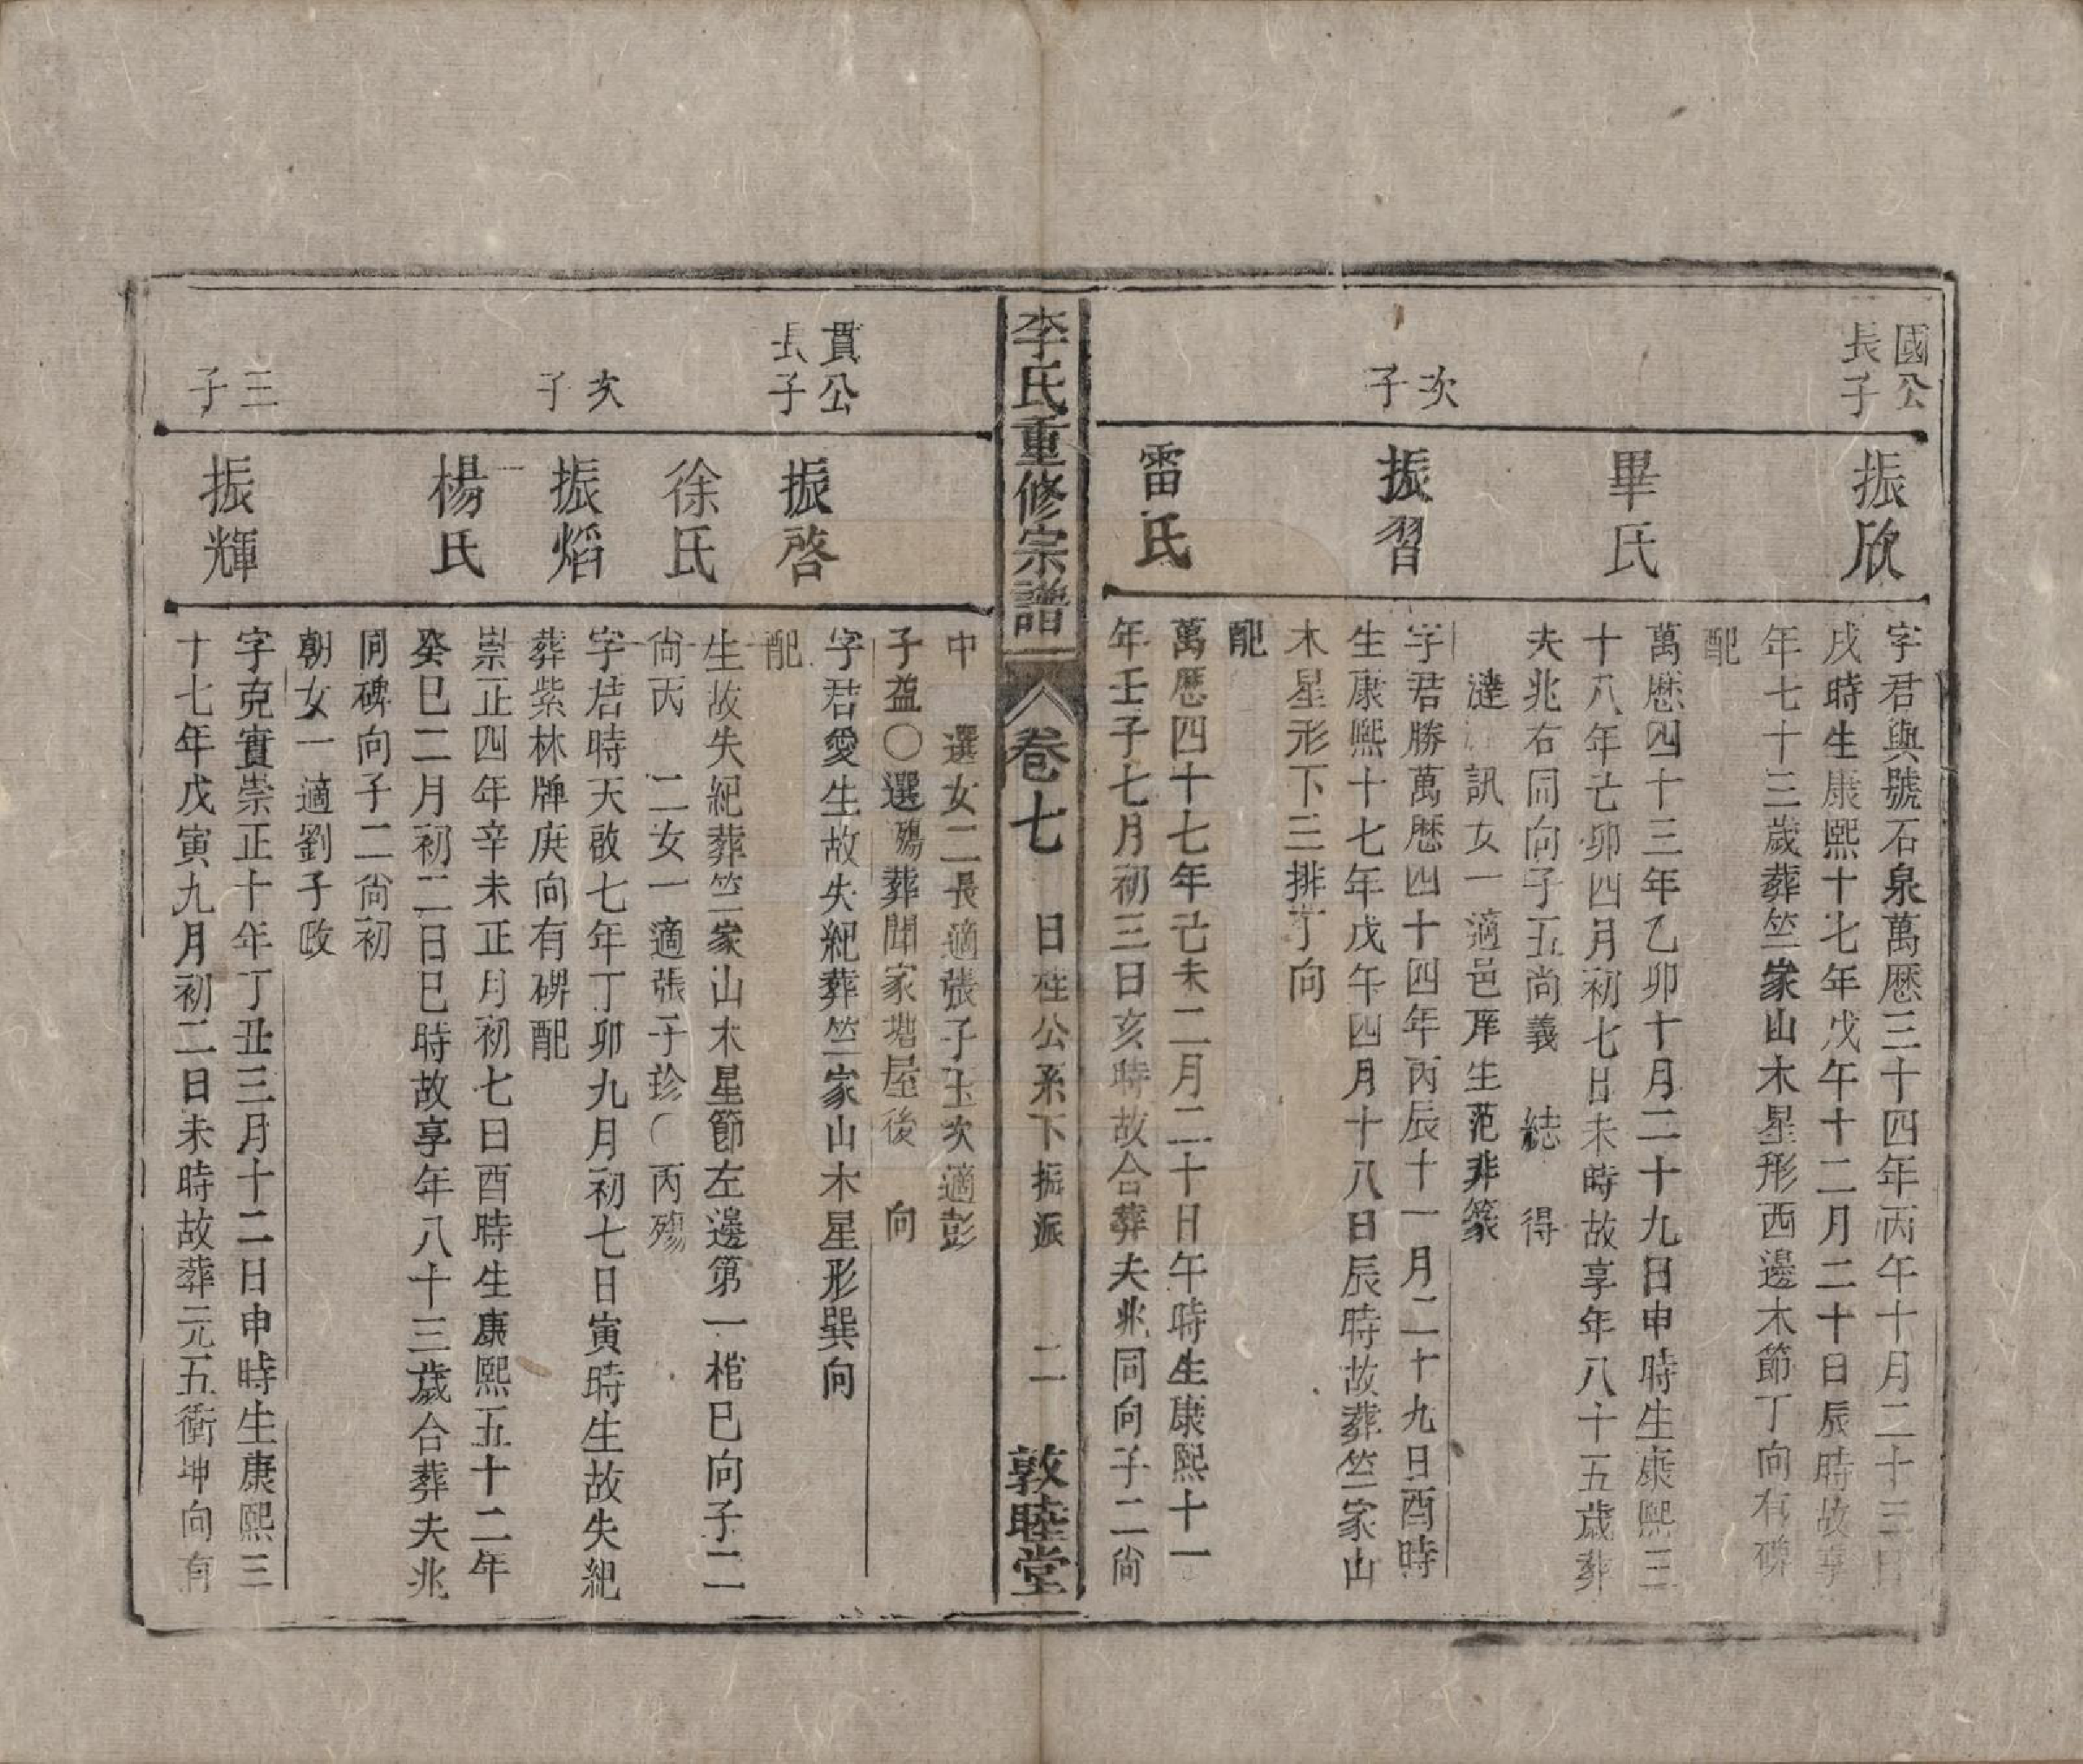 國公
長子
振欣
字君與號石泉萬歷三十四年丙午十月二十三日
戌時生康熙十七年戊午十二月二十日辰時故享
年七十三歲葬竺家山木星形西邊木節丁向有碑
配
畢氏
萬歷四十三年乙卯十月二十九日申時生康熙三
十八年己卯四月初七日未時故享年八十五歲葬
夫兆右同向子五尚義 結 得
達 訊女一適邑庠生范非篆
次子
振習
字君勝萬歷四十四年丙辰十一月二十九日酉時
生康熙十七年戊午四月十八日辰時故葬竺家山
木星形下三排丁向
配
雷氏
萬歷四十七年己未二月二十日午時生康熙十一
年壬子七月初三日亥時故合葬夫兆同向子二尚
李氏重修宗譜 卷七 日桂公系下振派 二 敦睦堂
中 選女二長適張子玉次適彭
子益〇選殤葬聞家塘屋後 向
貫公
長子
振啓
字君愛生故失紀葬竺家山木星形巽向
配
徐氏
生故失紀葬竺家山木星節左邊第一棺巳向子二
尚丙 二女一適張子珍〇丙殤
次子
振熖
字君時天啟七年丁卯九月初七日寅時生故失紀
葬紫林牌庚向有碑配
楊氏
崇正四年辛未正月初七日酉時生康熙五十二年
癸巳二月初二日巳時故享年八十三歲合葬夫兆
同碑向子二尚初
朝女一適劉子政
三子
振輝
字克實崇正十年丁丑三月十二日申時生康熙三
十七年戊寅九月初二日未時故葬元五衝坤向有